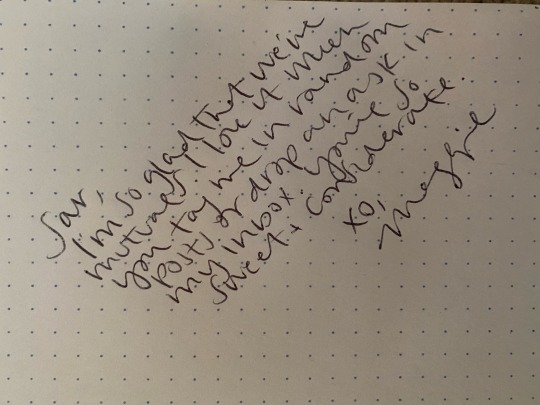 Sar,
I'm so glad that we're
mutuals! I love it when
you tag me in random
posts or drop an ask in
my inbox. You're so
sweet & considerate.
xo,
Maggie